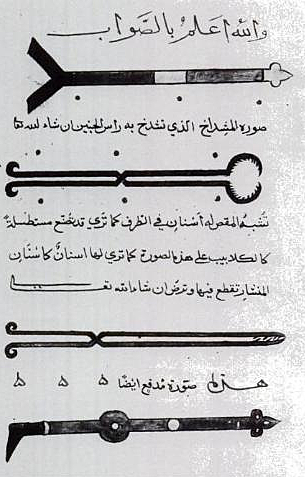 والله اعلم بالصواب
صورة المشداخ الذي تشدخ به راس الجنين ان شاء الله تعا
تشبه المقص له اسنان في الطرف كما تري قد تصنع مستطيلة
كالكلاليب على هذه الصورة كما تري لها اسنان كاسنان
المنشار تقطع فيها وترض ان شاء الله تعالى
هذه صورة مدفع ايضا ه ه ه